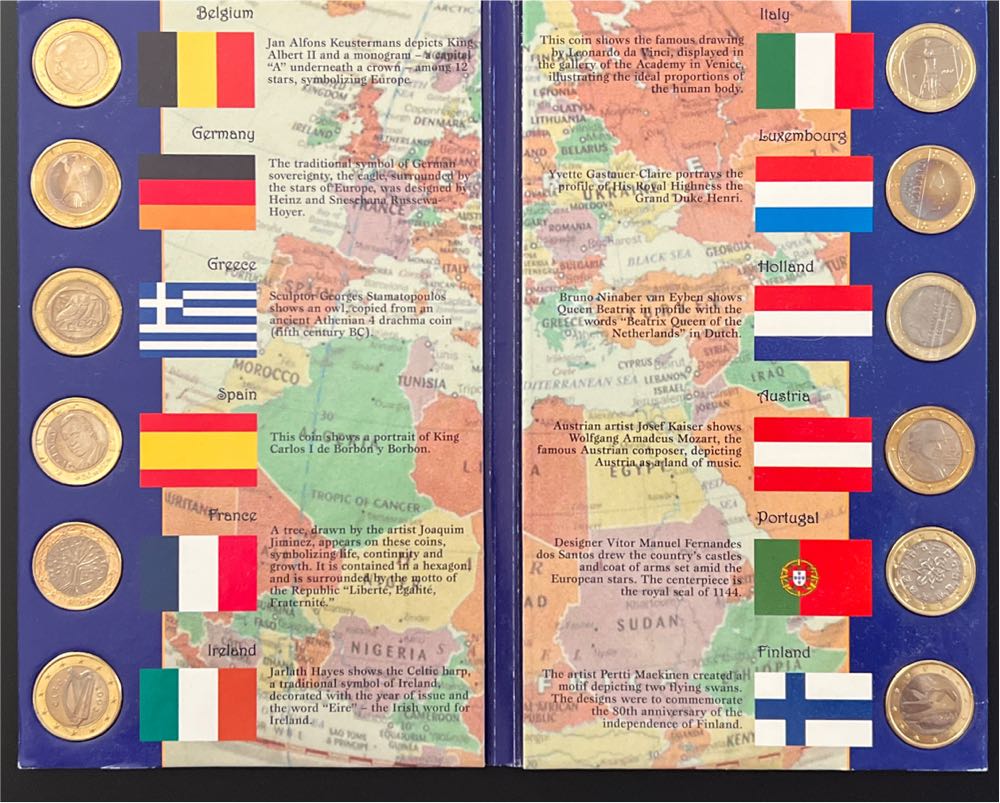 Belgium
Jan Alfons Keustermans depicts King
Albert II and a monogram – a capital
"A" underneath a crown – among 12
stars, symbolizing Europe.
Germany
The traditional symbol of German
sovereignty, the eagle, surrounded by
the stars of Europe, was designed by
Heinz and Sneschana Russewa-
Hoyer.
Greece
Sculptor Georges Stamatopoulos
shows an owl, copied from an
ancient Athenian 4 drachma coin
(fifth century BC).
Spain
This coin shows a portrait of King
Carlos I de Borbón y Borbon.
France
A tree, drawn by the artist Joaquim
Jiminez, appears on these coins,
symbolizing life, continuity and
growth. It is contained in a hexagon
and is surrounded by the motto of
the Republic "Liberté, Egalité,
Fraternité."
Ireland
Jarlath Hayes shows the Celtic harp,
a traditional symbol of Ireland,
decorated with the year of issue and
the word "Eire" – the Irish word for
Ireland.
Italy
This coin shows the famous drawing
by Leonardo da Vinci, displayed in
the gallery of the Academy in Venice,
illustrating the ideal proportions of
the human body.
Luxembourg
Yvette Gastauer-Claire portrays the
profile of His Royal Highness the
Grand Duke Henri.
Holland
Bruno Ninaber van Eyben shows
Queen Beatrix in profile with the
words "Beatrix Queen of the
Netherlands" in Dutch.
Austria
Austrian artist Josef Kaiser shows
Wolfgang Amadeus Mozart, the
famous Austrian composer, depicting
Austria as a land of music.
Portugal
Designer Vitor Manuel Fernandes
dos Santos drew the country's castles
and coat of arms set amid the
European stars. The centerpiece is
the royal seal of 1144.
Finland
The artist Pertti Maekinen created a
motif depicting two flying swans.
The designs were to commemorate
the 80th anniversary of the
independence of Finland.
ARCTIC
KINGDOM
IRELAND
DENMARK
Copenhagen
NETHERLANDS
FRANCE
SPAIN
ITALY
MOROCCO
TUNISIA
Tunis
30
TROPIC OF CANCER
NIGERIA
CAMEROON
SAO TOME
& PRINCIPE
GUINEA
ESTONIA
LATVIA
LITHUANIA
BELARUS
UKRAINE
MOLDOVA
ROMANIA
Bucharest
BULGARIA
BLACK SEA
GEORGIA
GREECE
CYPRUS
SYRIA
LEBANON
ISRAEL
IRAQ
JORDAN
MEDITERRANEAN SEA
EGYPT
RED
SEA
SUDAN
KENYA